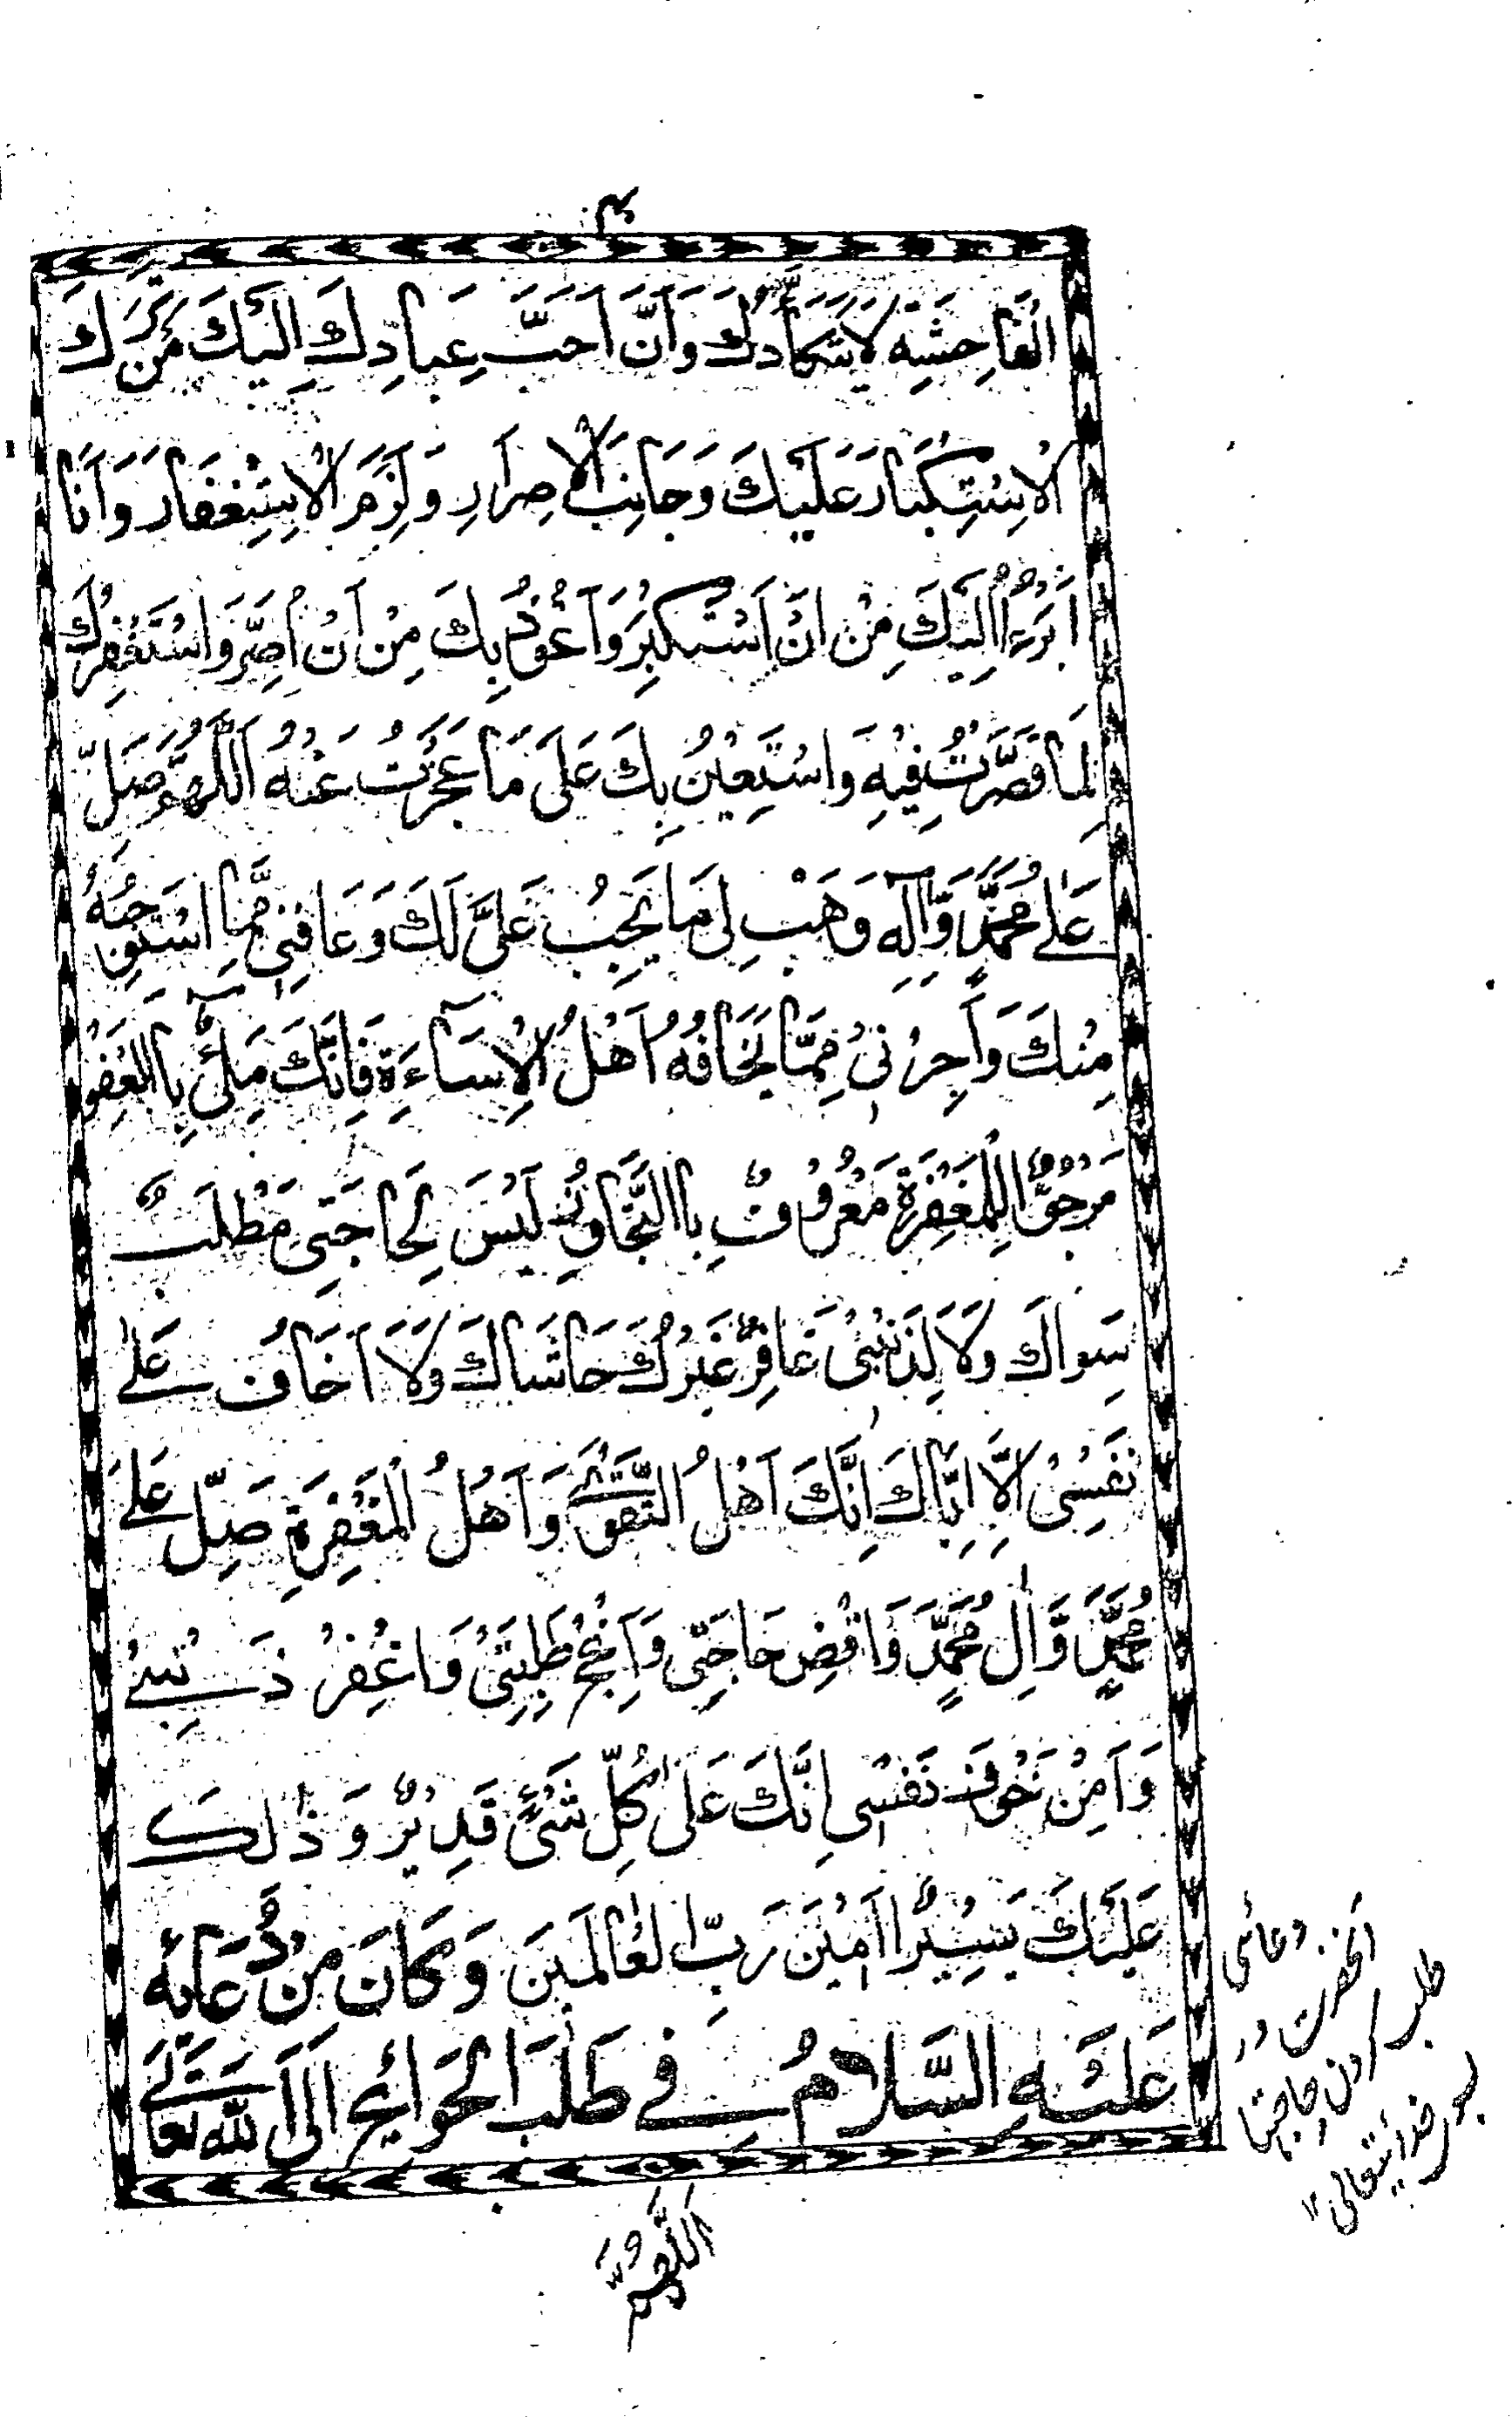 الْفَاحِشَةِ لِاَشْهَادِكَ وَاَنَّ اَحَبَّ عِبَادِكَ اِلَيْكَ مَنْ تَرَكَ
الْاِسْتِكْبَارَ عَلَيْكَ وَجَانَبَ الْاِصْرَارِ وَلَزِمَ الْاِسْتِغْفَارَ وَاَنَا
اَبْرَءُ اِلَيْكَ مِنْ اَنْ اَسْتَكْبِرَ وَاَعُوْذُ بِكَ مِنْ اَنْ اُصِرَّ وَاَسْتَغْفِرُكَ
لِمَا قَصَّرْتُ فِيْهِ وَاَسْتَعِيْنُ بِكَ عَلَى مَا عَجَزْتُ عَنْهُ اَللّٰهُمَّ صَلِّ
عَلٰى مُحَمَّدٍ وَّاٰلِهِ وَهَبْ لِى مَا يَجِبُ عَلَىَّ لَكَ وَعَافِنِى مِمَّا اَسْتَوْجِبُهُ
مِنْكَ وَاَجِرْنِىْ مِمَّا يَخَافُهُ اَهْلُ الْاِسَآءَةِ فَاِنَّكَ مَلِىٌّ بِاالْعَفْوِ
مَرْجُوٌّ الِلْمَغْفِرَةِ مَعْرُوْفٌ بِاالتَّجَاوُزِ لَيْسَ لِحَاجَتِى مَطْلَبٌ
سِوَاكَ وَلَا لِذَنْبِىْ غَافِرٌ غَيْرُكَ حَاشَاكَ وَلَا اَخَافُ عَلٰى
نَفْسِىْ اِلَّا اِيَّاكَ اِنَّكَ اَهْلُ التَّقْوٰى وَاَهْلُ الْمَغْفِرَةِ صَلِّ عَلٰى
مُحَمَّدٍ وَّاٰلِ مُحَمَّدٍ وَاقْضِ حَاجَتِى وَاَنْجِحْ طَلِبَتِىْ وَاغْفِرْ ذَنْبِىْ
وَاٰمِنْ خَوْفَ نَفْسِى اِنَّكَ عَلٰى كُلِّ شَىْءٍ قَدِيْرٌ وَذٰلِكَ
عَلَيْكَ يَسِيْرٌ اٰمِيْنَ رَبَّ الْعَالَمِيْنَ وَكَانَ مِنْ دُعَائِهِ
عَلَيْهِ السَّلَامُ فِى طَلَبِ الْحَوَائِجِ اِلَى اللّٰهِ تَعَالٰى
دعائى آنحضرت در
طلب كردن حاجتها
بسوى خدايتعالى ١٢
اَللّٰهُمَّ